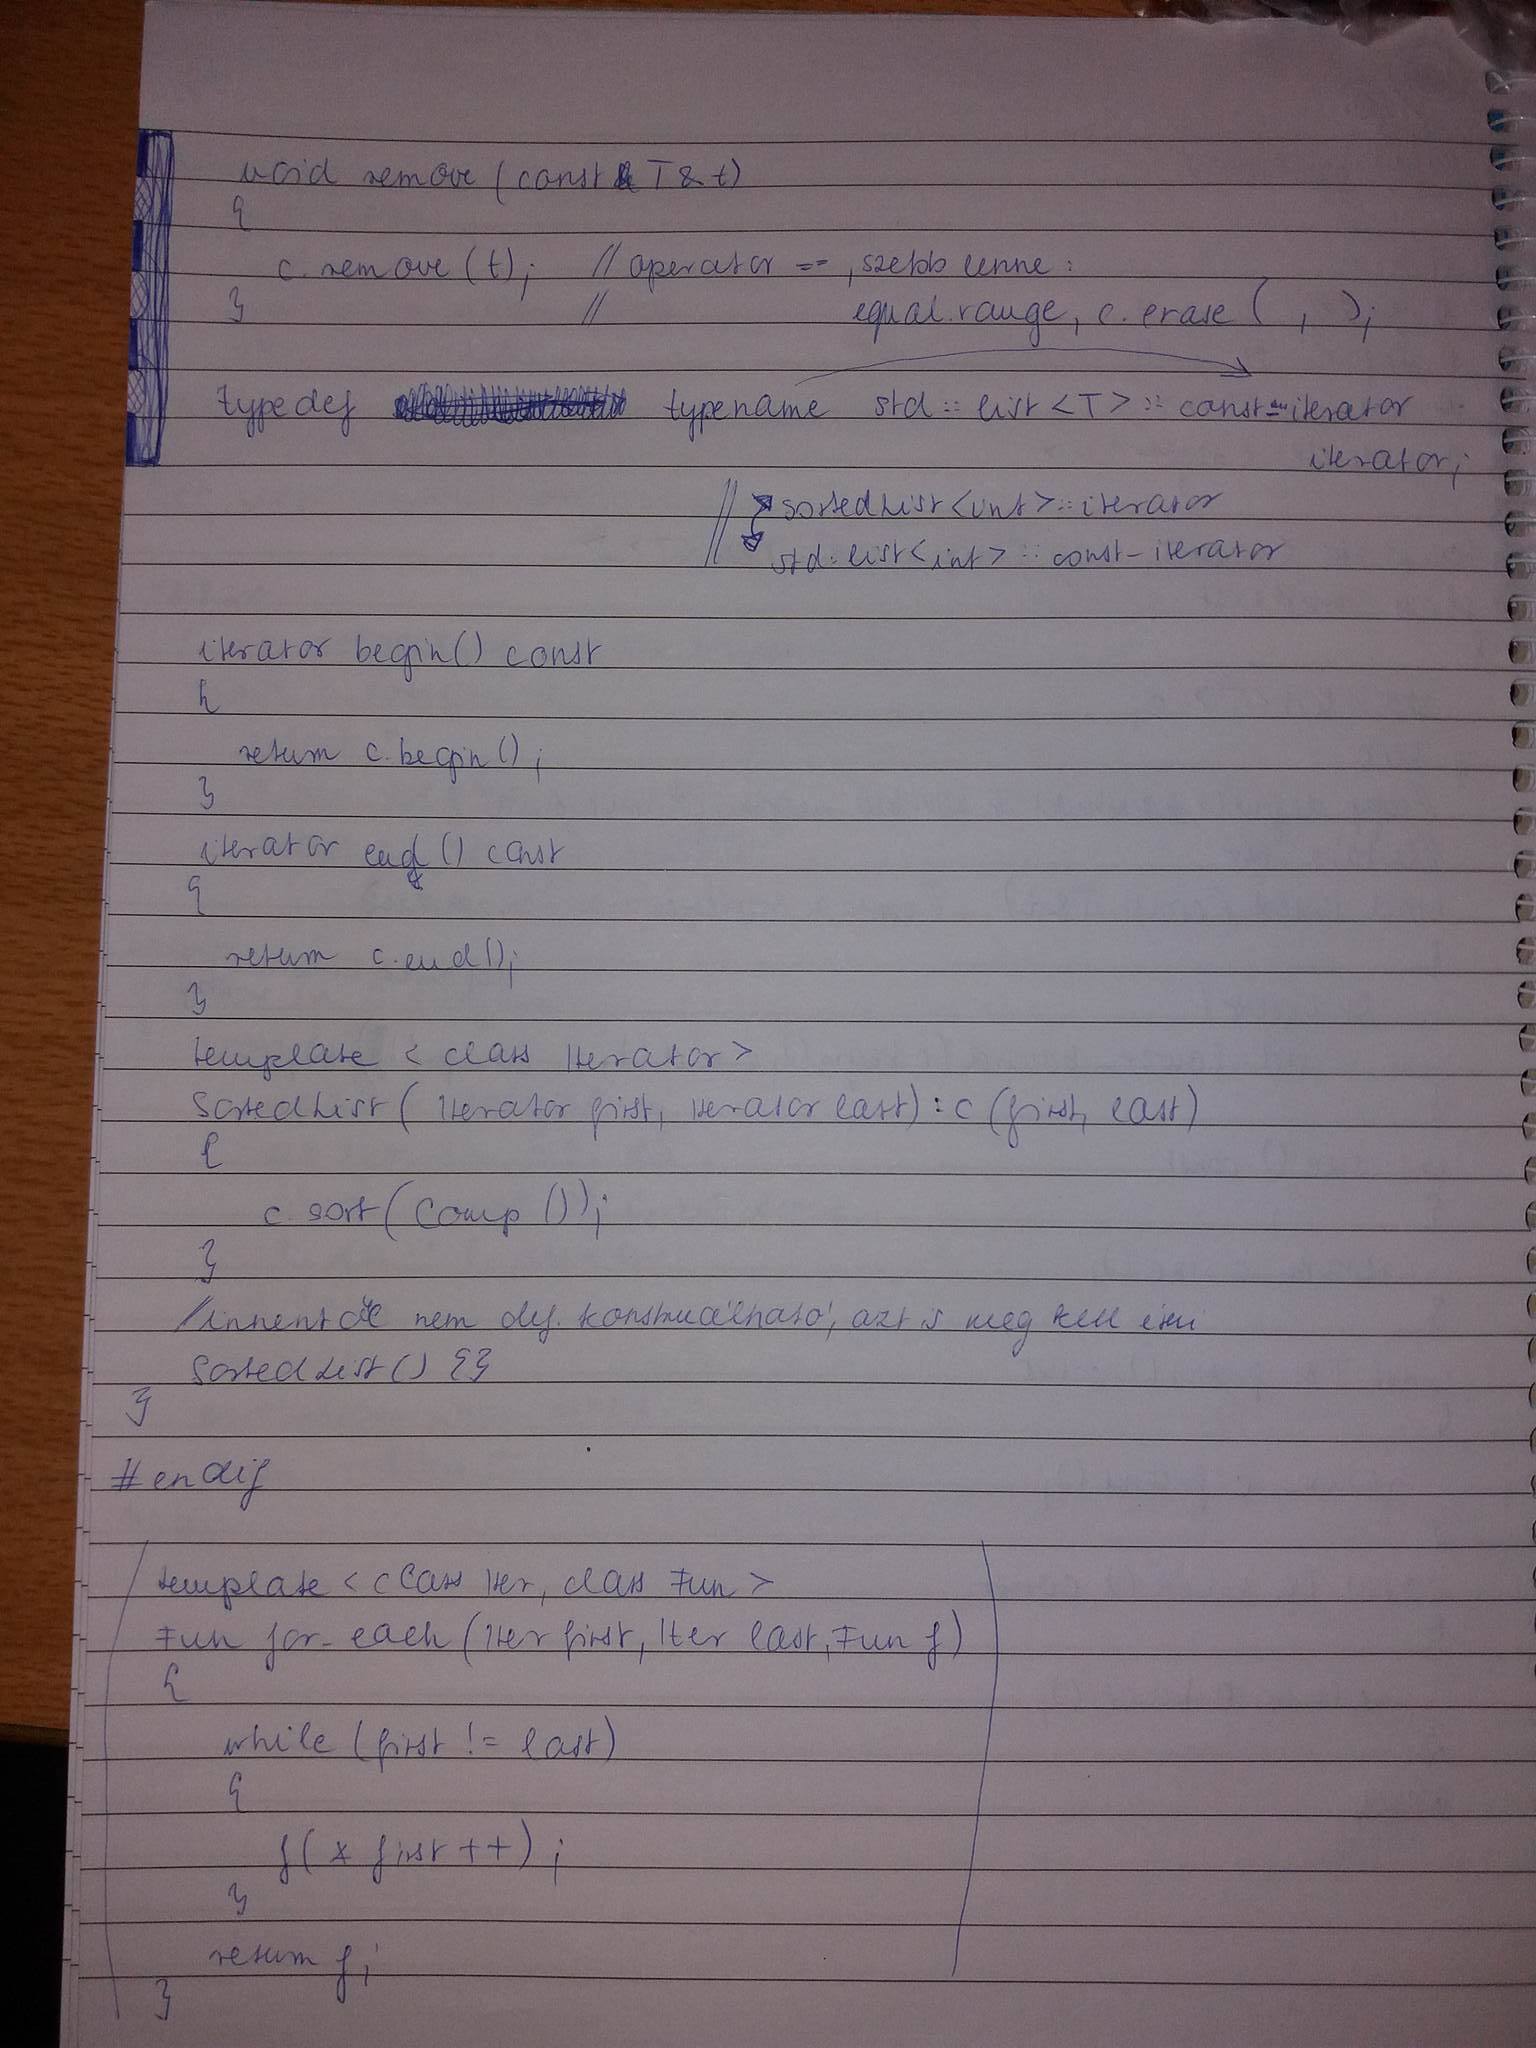 void remove (const T & t)
{
c.remove (t); // operator == , szebb lenne:
} // equal.range, c.erase ( , );
typedef typename std :: list <T> :: const_iterator
iterator;
// sortedList <int> :: iterator
std: list <int> :: const-iterator
iterator begin() const
{
return c.begin();
}
iterator end () const
{
return c.end();
}
template < class Iterator>
SortedList ( Iterator first, Iterator last) : c (first, last)
{
c.sort (Comp ());
}
//innentől nem def. konstruálható, azt is meg kell írni
SortedList () {}
}
#endif
template < class Iter, class Fun >
Fun for_each (Iter first, Iter last, Fun f)
{
while (first != last)
{
f(* first ++);
}
return f;
}